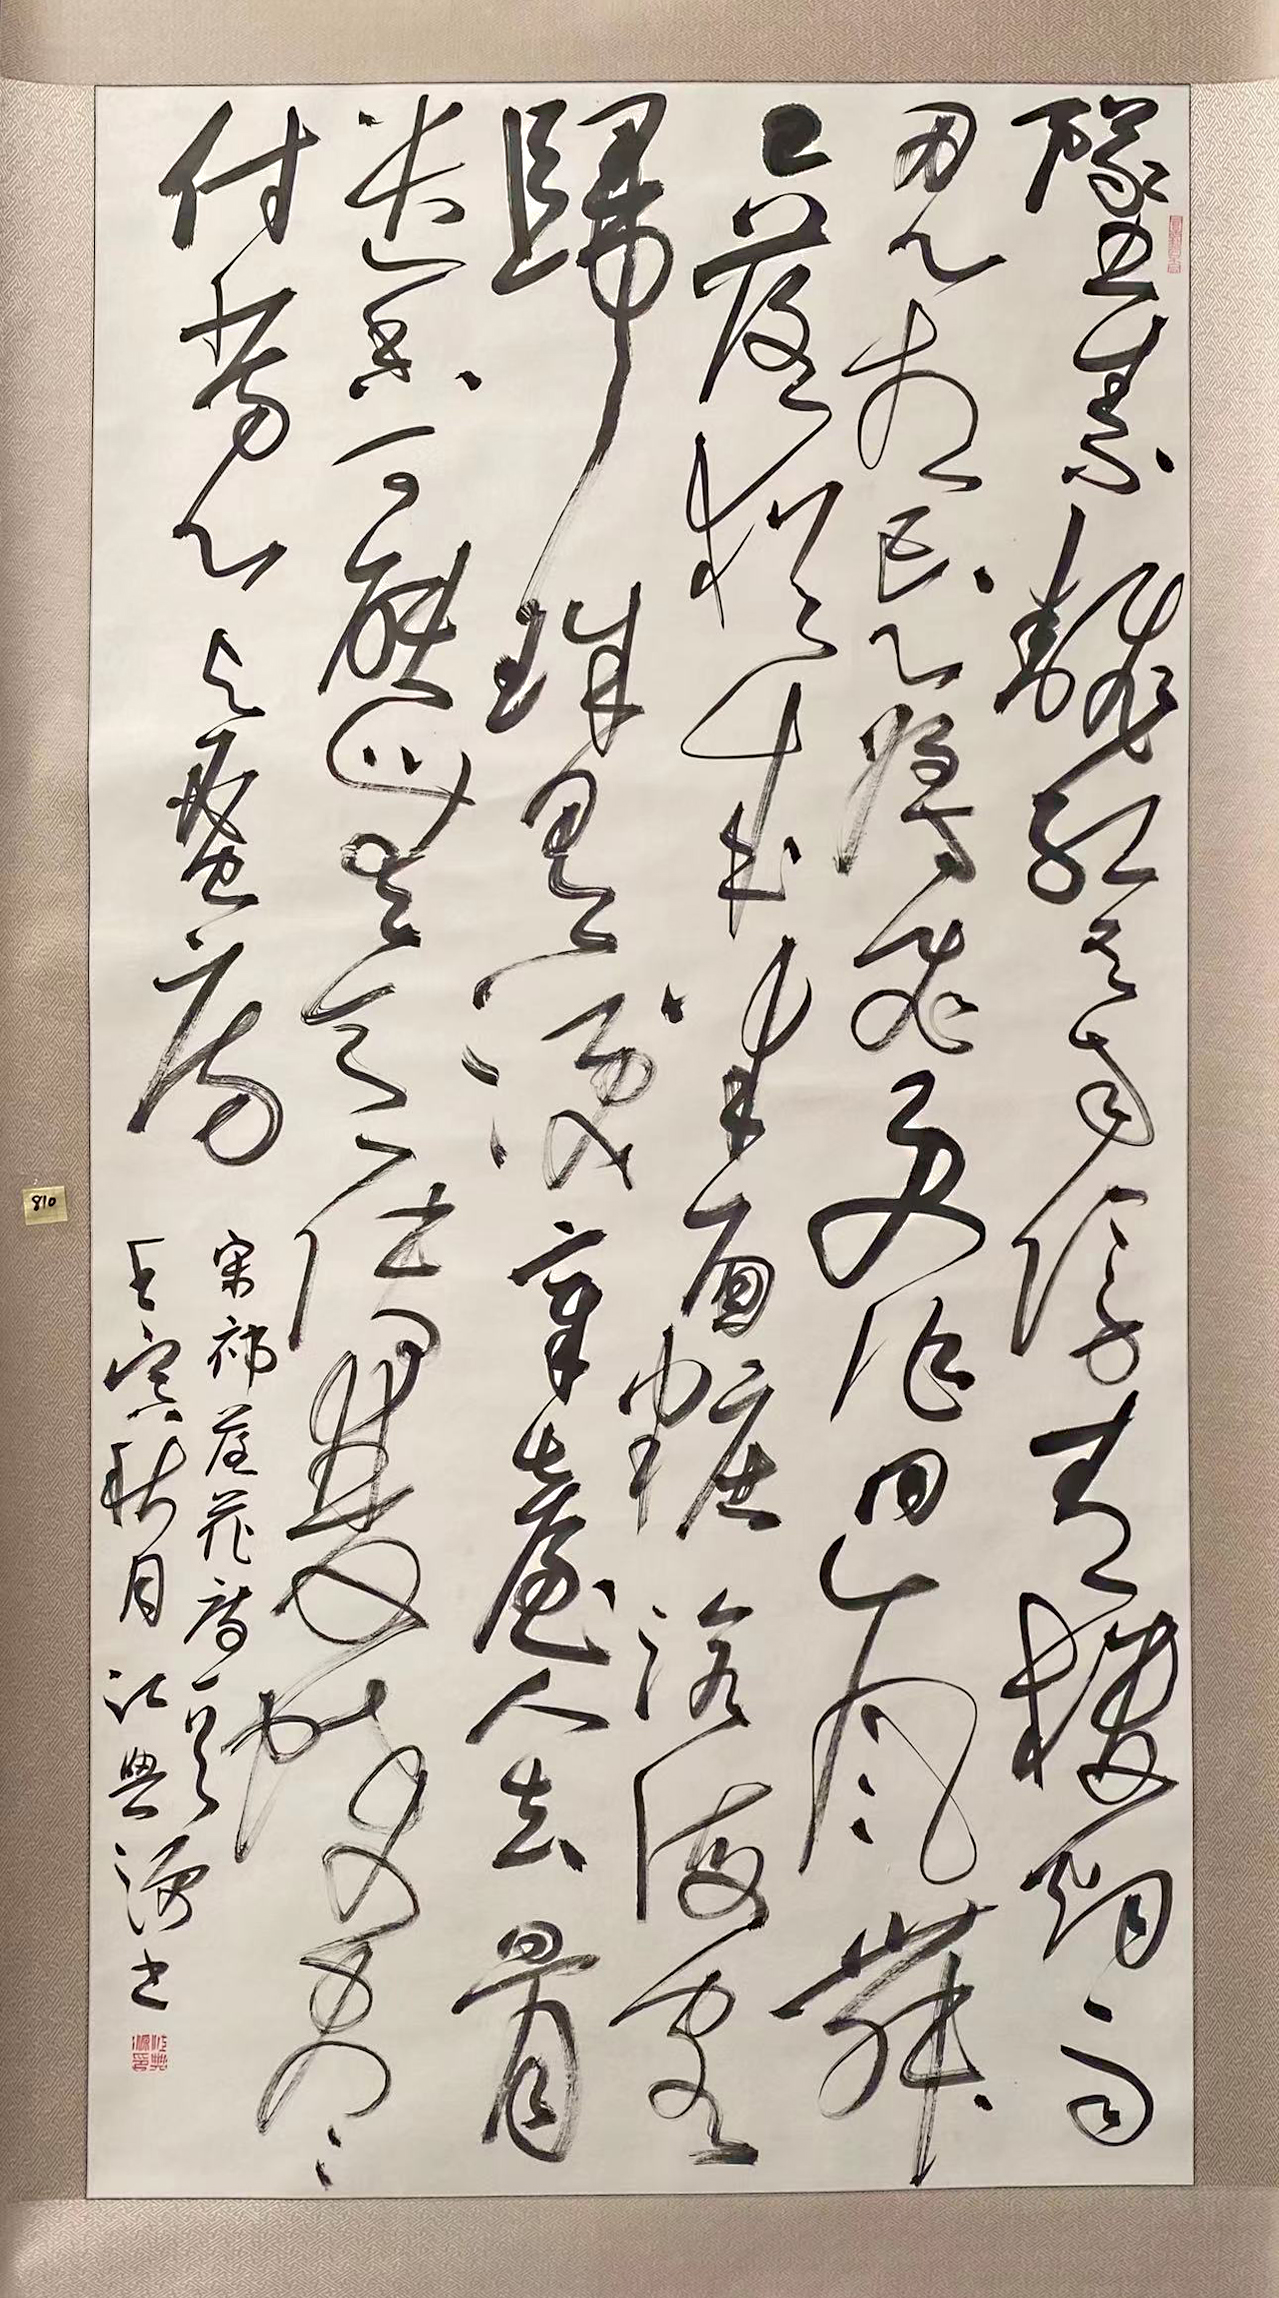 墜素飜紅各自傷青樓烟雨
忍相忘將飛更作回風舞
已落猶成半面糚滄海客
歸珠迸淚章臺人去骨
遺香可能無意傳雙蝶盡
付芳心与蜜房
宋祁落花詩一首
壬寅秋月
810